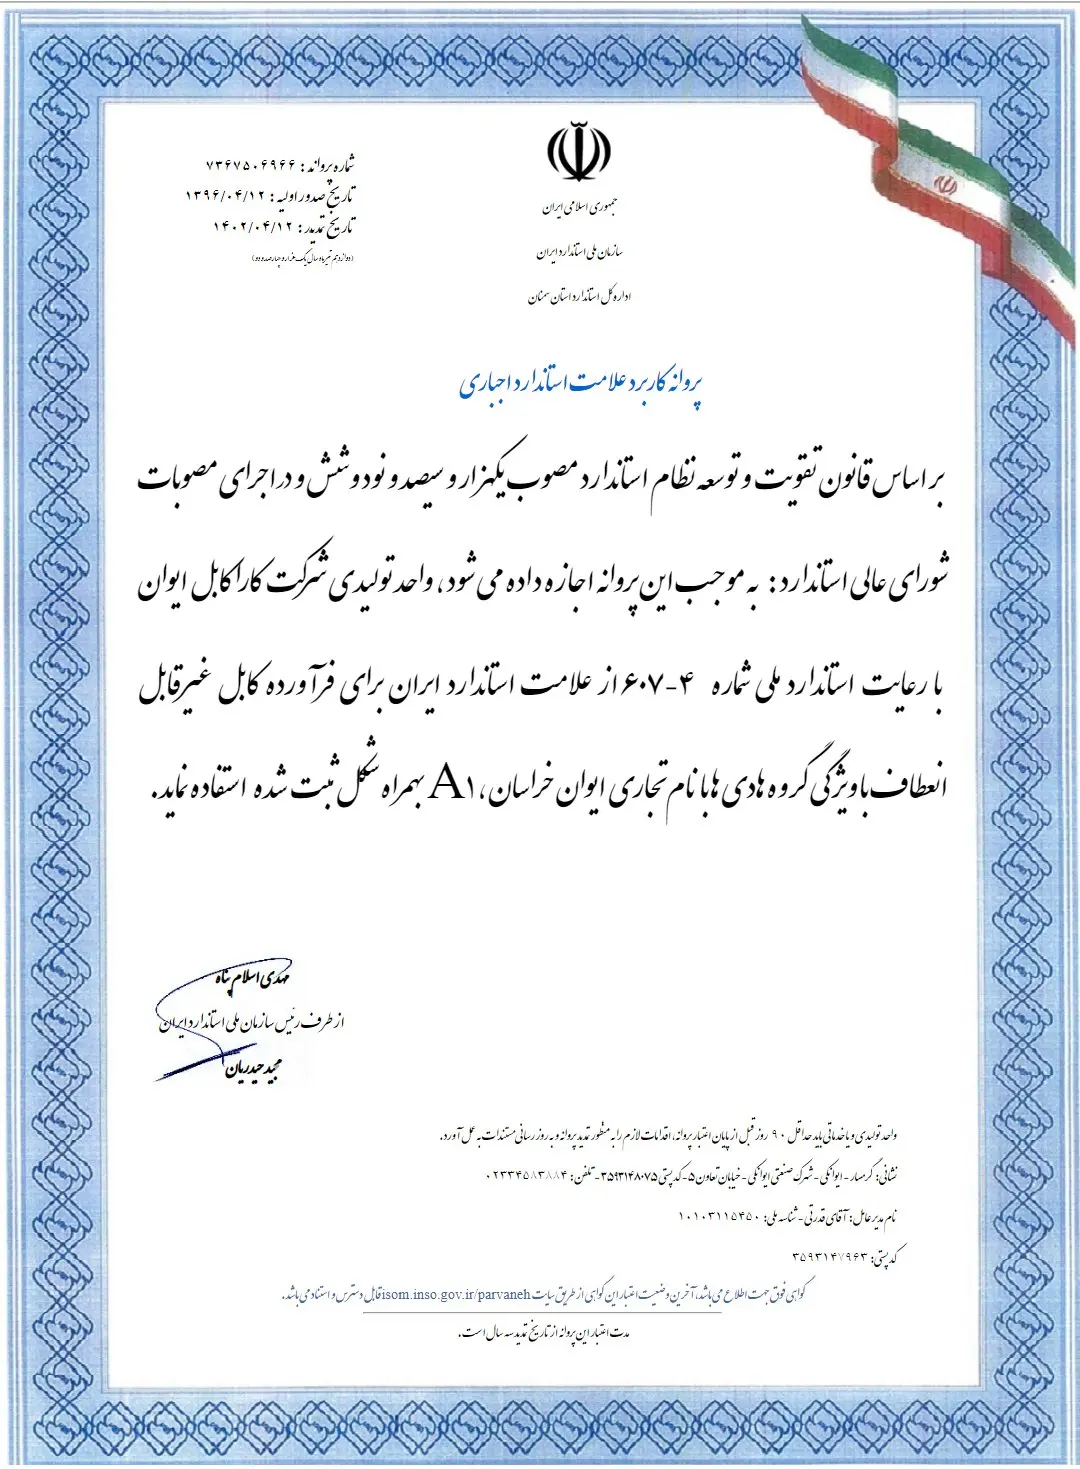 شماره پروانه : ۷۳۶۷۵۰۶۹۶۶
تاریخ صدور اولیه : ۱۳۹۶/۰۴/۱۲
تاریخ تمدید : ۱۴۰۲/۰۴/۱۲
(دوازدهم تیر ماه سال یک هزار و چهارصد و دو)
جمهوری اسلامی ایران
سازمان ملی استاندارد ایران
اداره کل استاندارد استان سمنان
پروانه کاربرد علامت استاندارد اجباری
بر اساس قانون تقویت و توسعه نظام استاندارد مصوب یکهزار و سیصد و نود و شش و در اجرای مصوبات
شورای عالی استاندارد: به موجب این پروانه اجازه داده می شود، واحد تولیدی شرکت کاراکابل ایوان
با رعایت استاندارد ملی شماره ۴-۶۰۷ از علامت استاندارد ایران برای فرآورده کابل غیرقابل
انعطاف با ویژگی گروه هادی ها با نام تجاری ایوان خراسان، A۱ بهمراه شکل ثبت شده استفاده نماید.
مهدی اسلام پناه
از طرف رئیس سازمان ملی استاندارد ایران
مجید حیدریان
واحد تولیدی و یا خدماتی باید حداقل ۹۰ روز قبل از پایان اعتبار پروانه، اقدامات لازم را به منظور تمدید پروانه و به روز رسانی مستندات به عمل آورد.
نشانی: گرمسار - ایوانکی - شهرک صنعتی ایوانکی - خیابان تعاون ۵- کد پستی ۳۵۹۳۱۴۸۰۷۵- تلفن: ۰۲۳۳۴۵۸۳۸۸۴
نام مدیرعامل: آقای قدرتی - شناسه ملی: ۱۰۱۰۳۱۱۵۴۵۰
کد پستی: ۳۵۹۳۱۴۷۹۶۳
گواهی فوق جهت اطلاع می باشد، آخرین وضعیت اعتبار این گواهی از طریق سایت isom.inso.gov.ir/parvaneh قابل دسترس و استناد می باشد.
مدت اعتبار این پروانه از تاریخ تمدید سه سال است.